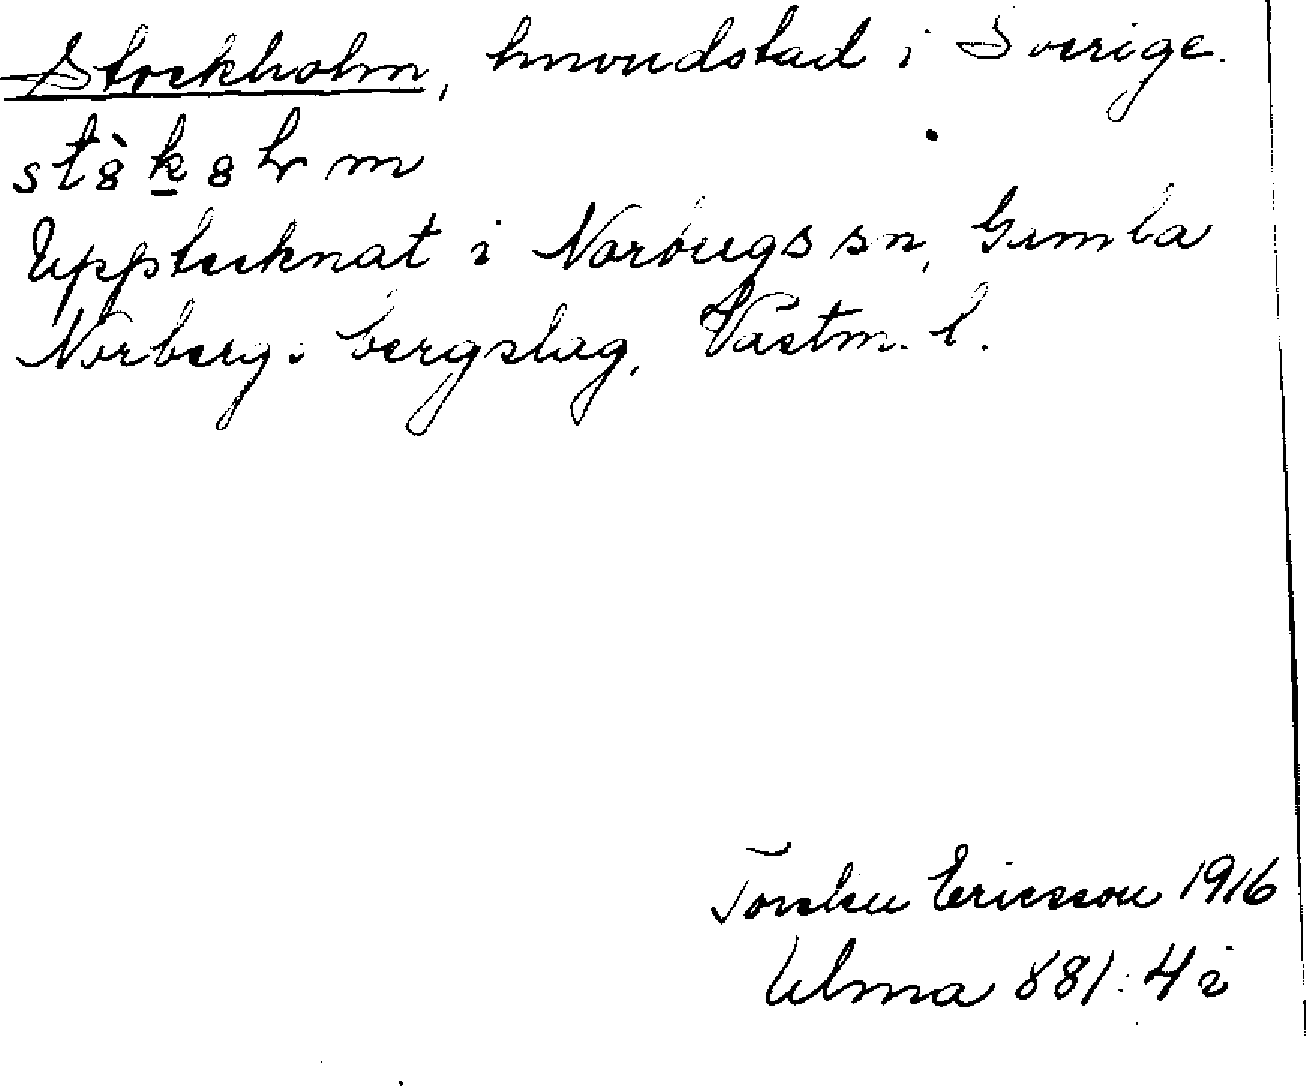 Stockholm, huvudstad i Sverige.
Upptecknat i Norbergs sn, Gamla
Norbergs bergslag, Västm. l.
Torsten Ericsson 1916
Ulma 881:4 i